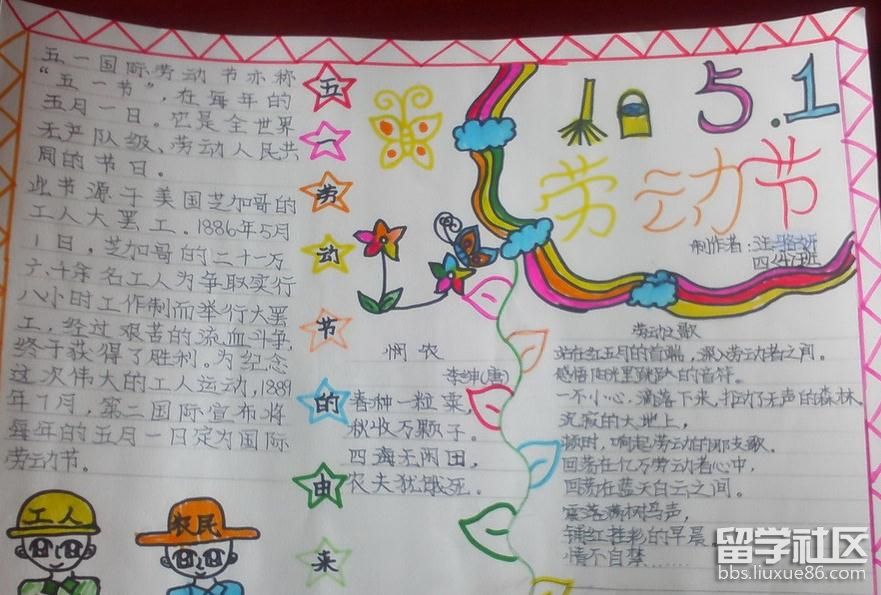 五一国际劳动节亦称
“五一节”，在每年的
五月一日。它是全世界
无产队级、劳动人民共
同的节日。
此节源于美国芝加哥的
工人大罢工.1886年5月
1日，芝加哥的二十一万
六千余名工人为争取实行
八小时工作制而举行大罢
工，经过艰苦的流血斗争，
终于获得了胜利。为纪念
这次伟大的工人运动，1889
年7月，第二国际宣布将
每年的五月一日定为国际
劳动节。
工人
农民
五一劳动节的由来
5.1
劳动节
制作者：汪
四班
悯农
李绅(唐)
春种一粒粟，
秋收万颗子。
四海无闲田，
农夫犹饿死。
劳动之歌
站在红五月的首端，深入劳动者之间。
感悟阳光里跳跃的音符。
一不小心，滴落下来，打动了无声的森林
沉寂的大地上，
顿时，响起劳动的那支歌。
回荡在亿万劳动者心中，
回荡在蓝天白云之间。
满树鸟声，
铺红挂彩的早晨
情不自禁……
留学社区
bbs.liuxue86.com